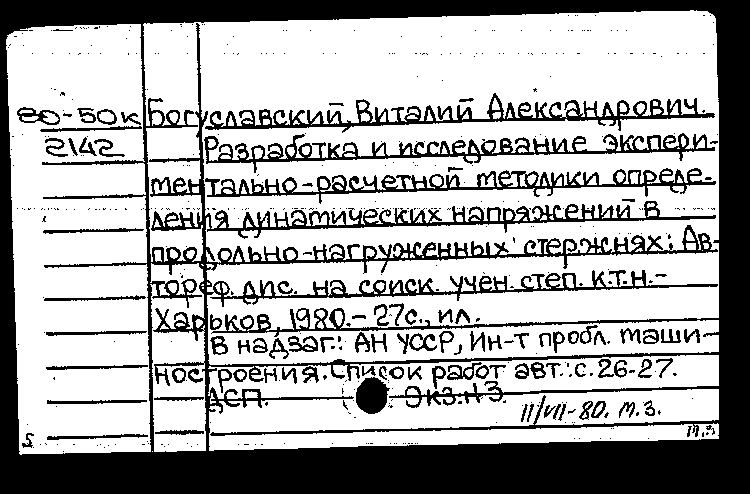 80-50к Богуславский, Виталий Александрович.
2142 Разработка и исследование экспери-
ментально-расчетной методики опреде-
ления динамических напряжений в
продольно-нагруженных стержнях: Ав-
тореф. дис. на соиск. учен. степ. к.т.н.-
Харьков, 1980.- 27с., ил.
В надзаг.: АН УССР, Ин-т пробл. маши-
ностроения. Список работ авт.: с. 26-27.
ДСП. Экз. н 3.
11/VII-80. м.з.
S м.з